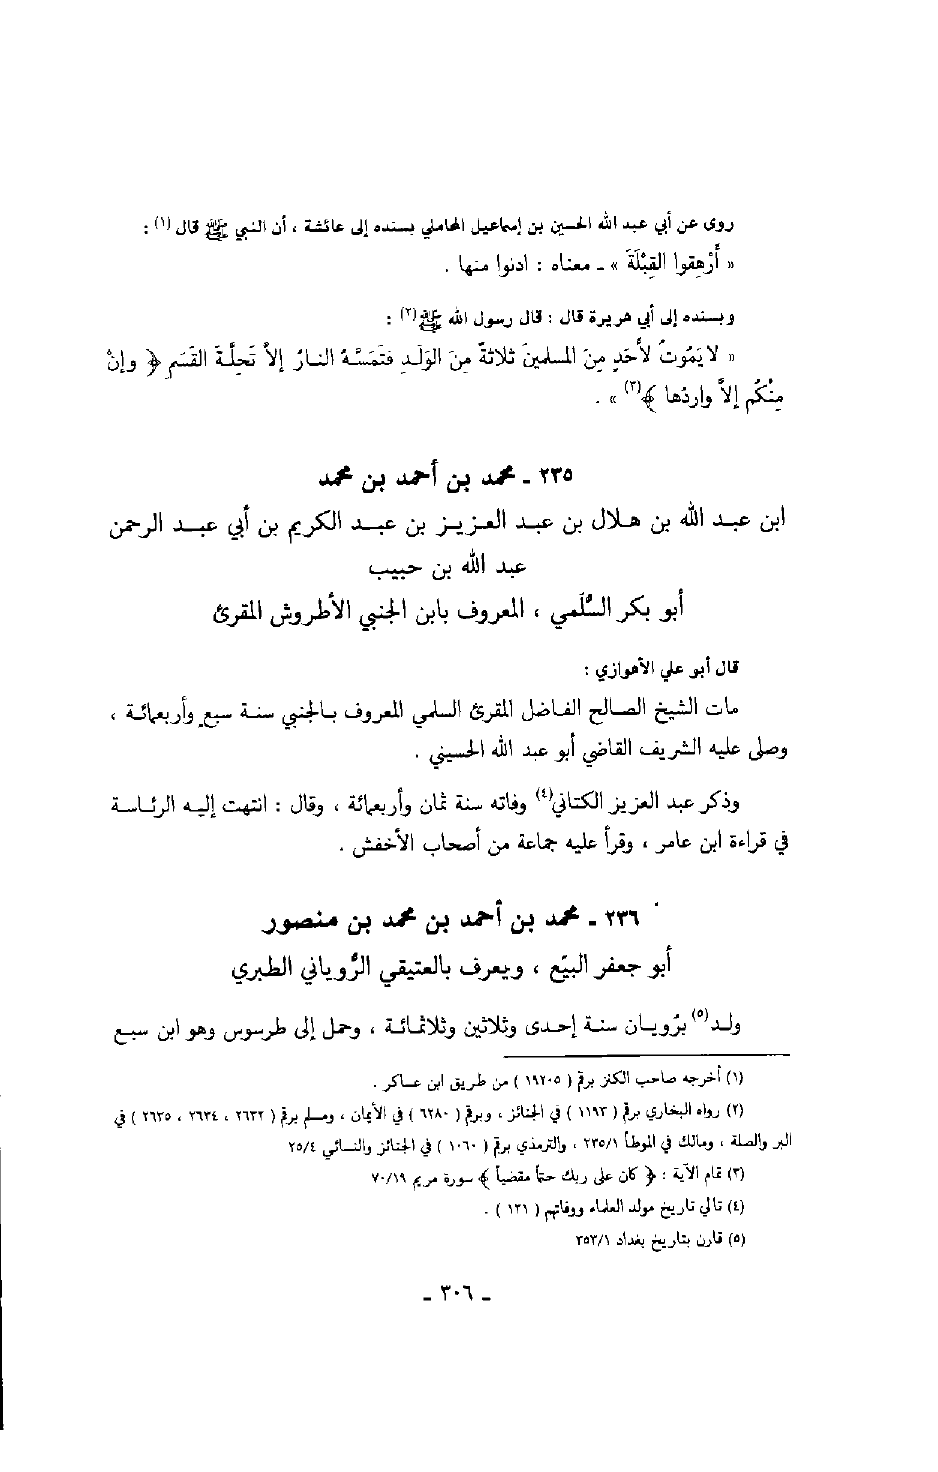 روى عن أبي عبد الله الحسين بن إسماعيل المحاملي بسنده إلى عائشة ، أن النبي ﷺ قال (١) :
« أَرْهِقوا القِبْلَةَ » ـ معناه : ادنوا منها .
وبسنده إلى أبي هريرة قال : قال رسول الله ﷺ (٢) :
« لا يَمُوتُ لأَحَدٍ مِنَ المسلمينَ ثلاثةٌ مِنَ الوَلَدِ فتَمَسَّهُ النارُ إلاّ تَحِلَّةَ القَسَمِ ﴿ وإنْ
مِنْكُم إلاَّ واردُها ﴾(٣) » .
٢٣٥ ـ محمد بن أحمد بن محمد
ابن عبد الله بن هلال بن عبد العزيز بن عبد الكريم بن أبي عبد الرحمن
عبد الله بن حبيب
أبو بكر السُّلَمي ، المعروف بابن الجبني الأطروش المقرئ
قال أبو علي الأهوازي :
مات الشيخ الصالح الفاضل المقرئ السلمي المعروف بالجبني سنة سبع وأربعمائة ،
وصلى عليه الشريف القاضي أبو عبد الله الحسيني .
وذكر عبد العزيز الكتاني(٤) وفاته سنة ثمان وأربعمائة ، وقال : انتهت إليه الرئاسة
في قراءة ابن عامر ، وقرأ عليه جماعة من أصحاب الأخفش .
٢٣٦ ـ محمد بن أحمد بن محمد بن منصور
أبو جعفر البيّع ، ويعرف بالعتيقي الرُّوياني الطبري
ولد(٥) برُويان سنة إحدى وثلاثين وثلاثمائة ، وحمل إلى طرسوس وهو ابن سبع
(١) أخرجه صاحب الكنز برقم ( ١٩٢٠٥ ) من طريق ابن عساكر .
(٢) رواه البخاري برقم ( ١١٩٣ ) في الجنائز ، وبرقم ( ٦٢٨٠ ) في الأيمان ، ومسلم برقم ( ٢٦٣٢ ، ٢٦٣٤ ، ٢٦٣٥ ) في
البر والصلة ، ومالك في الموطأ ٢٣٥/١ ، والترمذي برقم ( ١٠٦٠ ) في الجنائز والنسائي ٢٥/٤
(٣) تمام الآية : ﴿ كان على ربك حتماً مقضياً ﴾ سورة مريم ٧٠/١٩
(٤) تالي تاريخ مولد العلماء ووفاتهم ( ١٣١ ) .
(٥) قارن بتاريخ بغداد ٣٥٣/١
ـ ٣٠٦ ـ